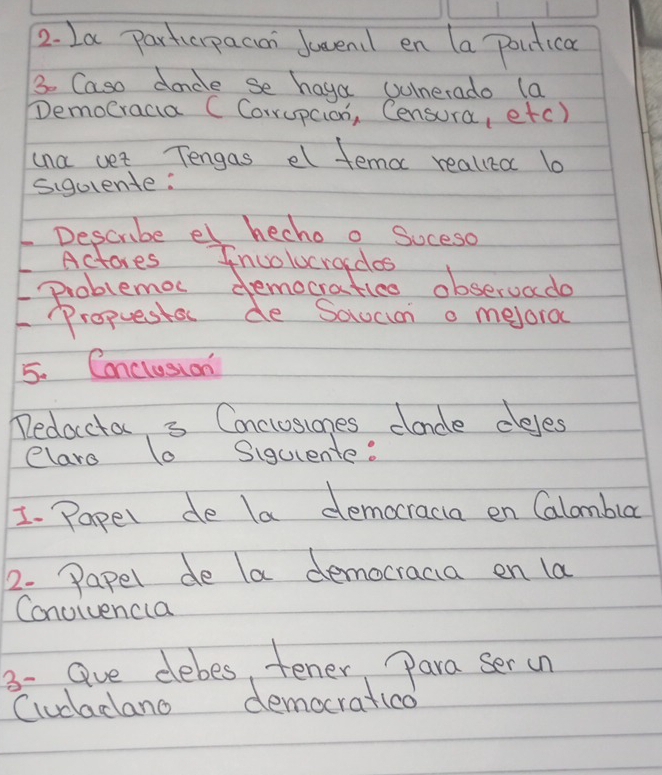 2- La participación Juvenil en la política
3- Caso donde se haya vulnerado la
Democracia ( Corrupción, Censura, etc)
una vez Tengas el tema realiza lo
siguiente:
- Describe el hecho o Suceso
- Actores Involucrados
- Problema democratico observado
- Propuesta de Solución o mejora
5. Conclusión
Redacta 3 Conclusiones donde dejes
Claro lo Siguiente:
I- Papel de la democracia en Colombia
2- Papel de la democracia en la
Convivencia
3- Que debes tener Para ser un
Ciudadano democratico